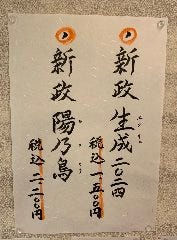 新政 生成 二〇二四
税込 一五〇〇円
新政 陽乃鳥
税込